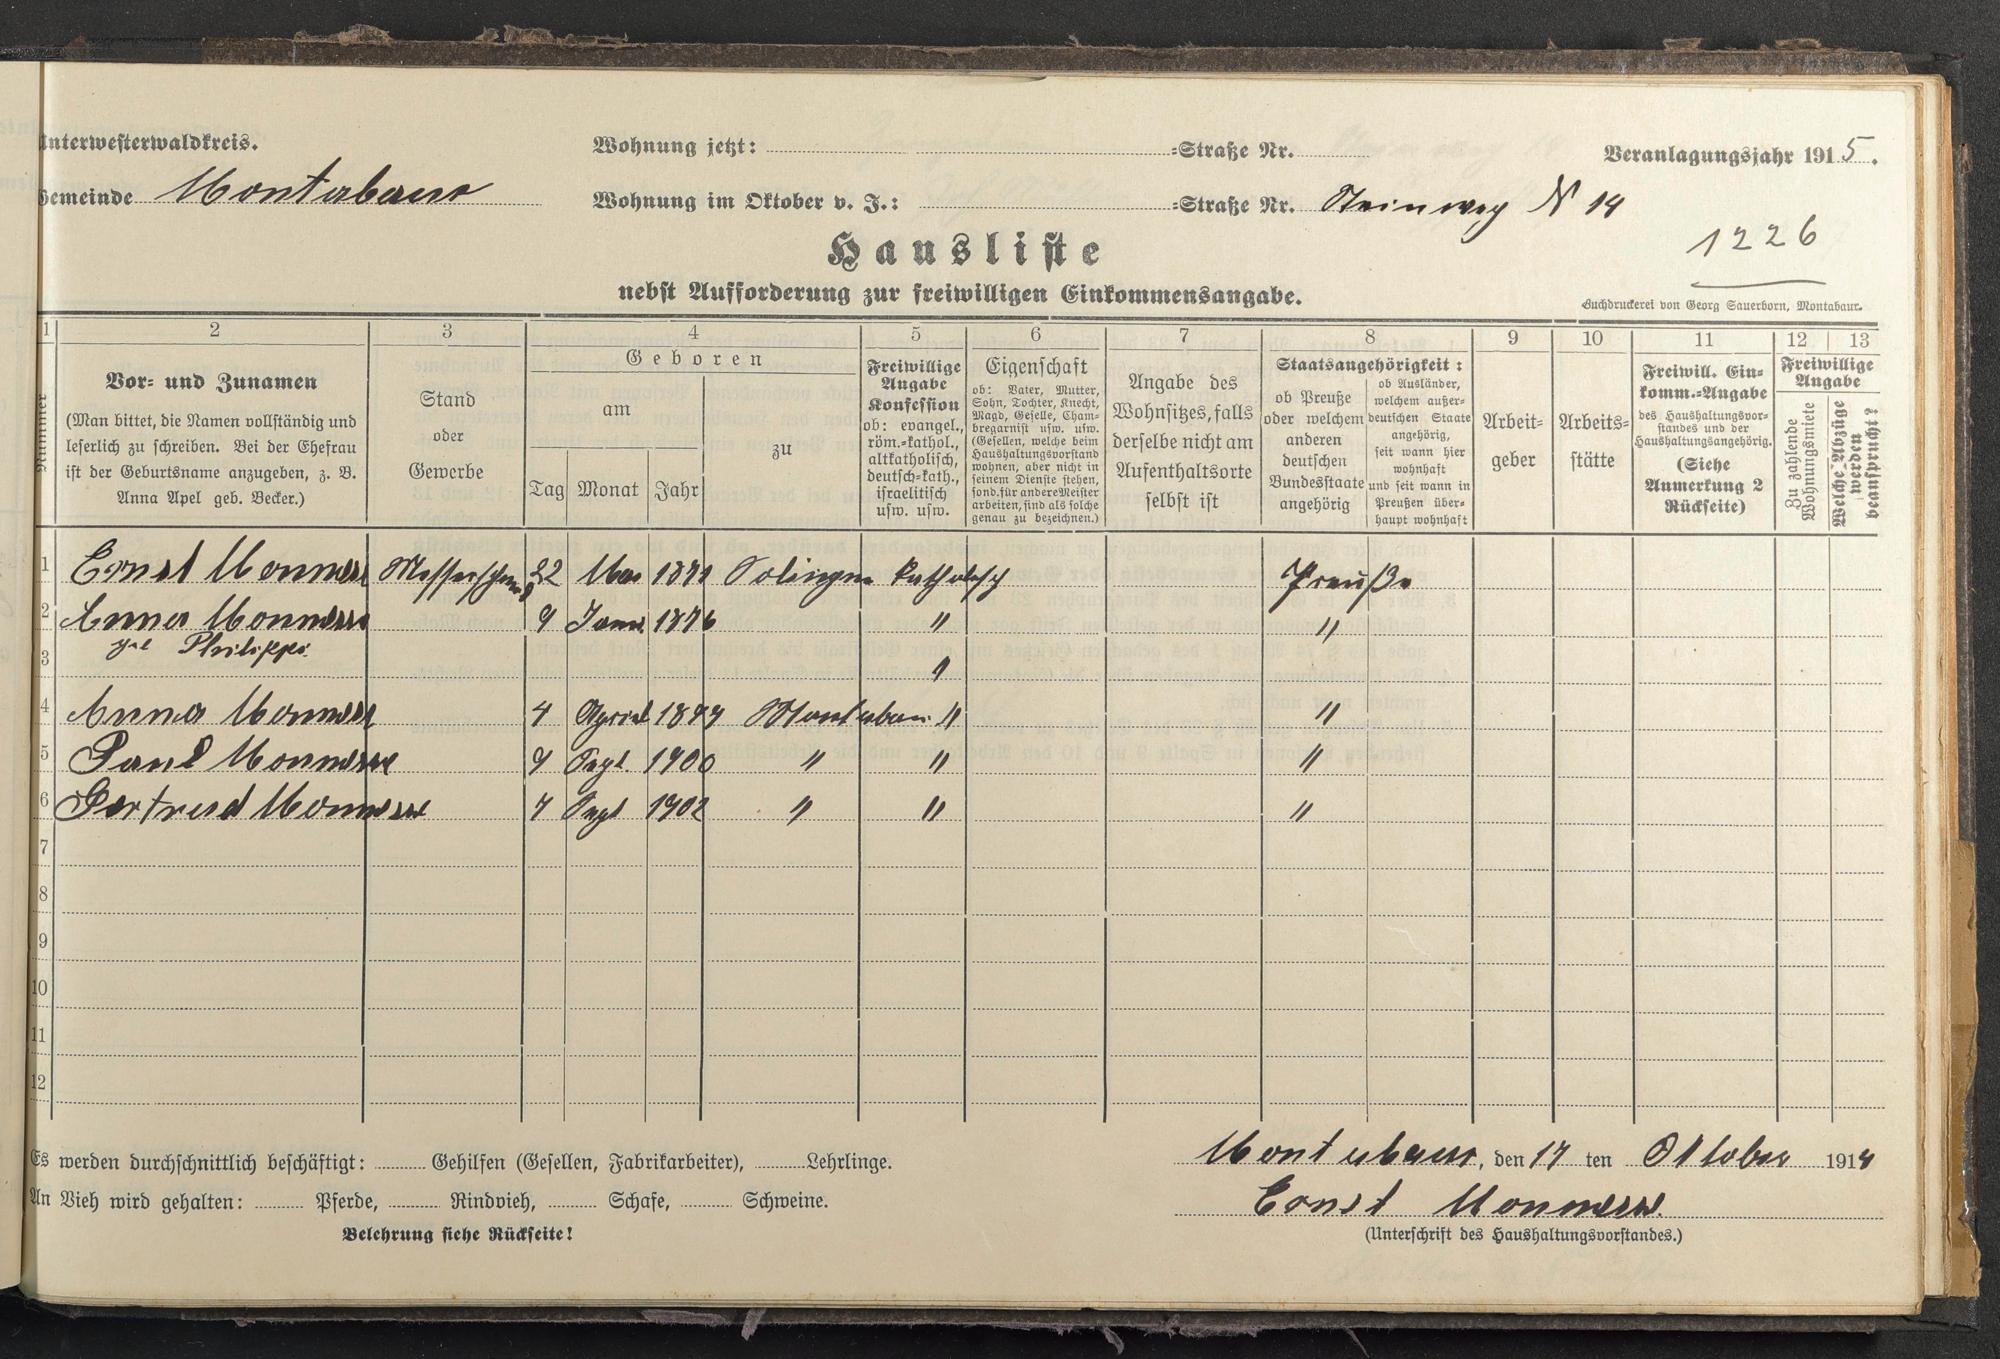 Unterwesterwaldkreis.
Wohnung jetzt: =Straße Nr.
Veranlagungsjahr 1915.
Gemeinde Montabaur
Wohnung im Oktober v. J.: =Straße Nr. Steinweg N 14
1226
Hausliste
nebst Aufforderung zur freiwilligen Einkommensangabe.
Buchdruckerei von Georg Sauerborn, Montabaur.
1 2 3 4 5 6 7 8 9 10 11 12 13
Nummer
Vor- und Zunamen
(Man bittet, die Namen vollständig und
leserlich zu schreiben. Bei der Ehefrau
ist der Geburtsname anzugeben, z. B.
Anna Apel geb. Becker.)
Stand
oder
Gewerbe
Geboren
am
zu
Tag Monat Jahr
Freiwillige
Angabe
Konfession
ob: evangel.,
röm.=kathol.,
altkatholisch,
deutsch=kath.,
israelitisch
usw. usw.
Eigenschaft
ob: Vater, Mutter,
Sohn, Tochter, Knecht,
Magd, Geselle, Cham-
bregarnist usw. usw.
(Gesellen, welche beim
Haushaltungsvorstand
wohnen, aber nicht in
seinem Dienste stehen,
sond. für andere Meister
arbeiten, sind als solche
genau zu bezeichnen.)
Angabe des
Wohnsitzes, falls
derselbe nicht am
Aufenthaltsorte
selbst ist
Staatsangehörigkeit:
ob Preuße
oder welchem
anderen
deutschen
Bundesstaate
angehörig
ob Ausländer,
welchem außer-
deutschen Staate
angehörig,
seit wann hier
wohnhaft
und seit wann in
Preußen über-
haupt wohnhaft
Arbeit-
geber
Arbeits-
stätte
Freiwill. Ein-
komm.=Angabe
des Haushaltungsvor-
standes und der
Haushaltungsangehörig.
(Siehe
Anmerkung 2
Rückseite)
Freiwillige
Angabe
Zu zahlende
Wohnungsmiete
Welche Abzüge
werden
beansprucht?
1 Ernst Monnerr Messerschmd 22 Mai 1871 Solingen katholisch Preuße
2 Anna Monnerr 9 Janu. 1876 " "
geb Philippi
3
4 Anna Monnerr 4 April 1899 Montabaur " "
5 Paul Monnerr 9 Sept. 1900 " " "
6 Gertrud Monnerr 7 Sept 1902 " " "
7
8
9
10
11
12
Es werden durchschnittlich beschäftigt: Gehilfen (Gesellen, Fabrikarbeiter), Lehrlinge.
An Vieh wird gehalten: Pferde, Rindvieh, Schafe, Schweine.
Belehrung siehe Rückseite!
Montabaur, den 17 ten Oktober 1914
Ernst Monnerr
(Unterschrift des Haushaltungsvorstandes.)